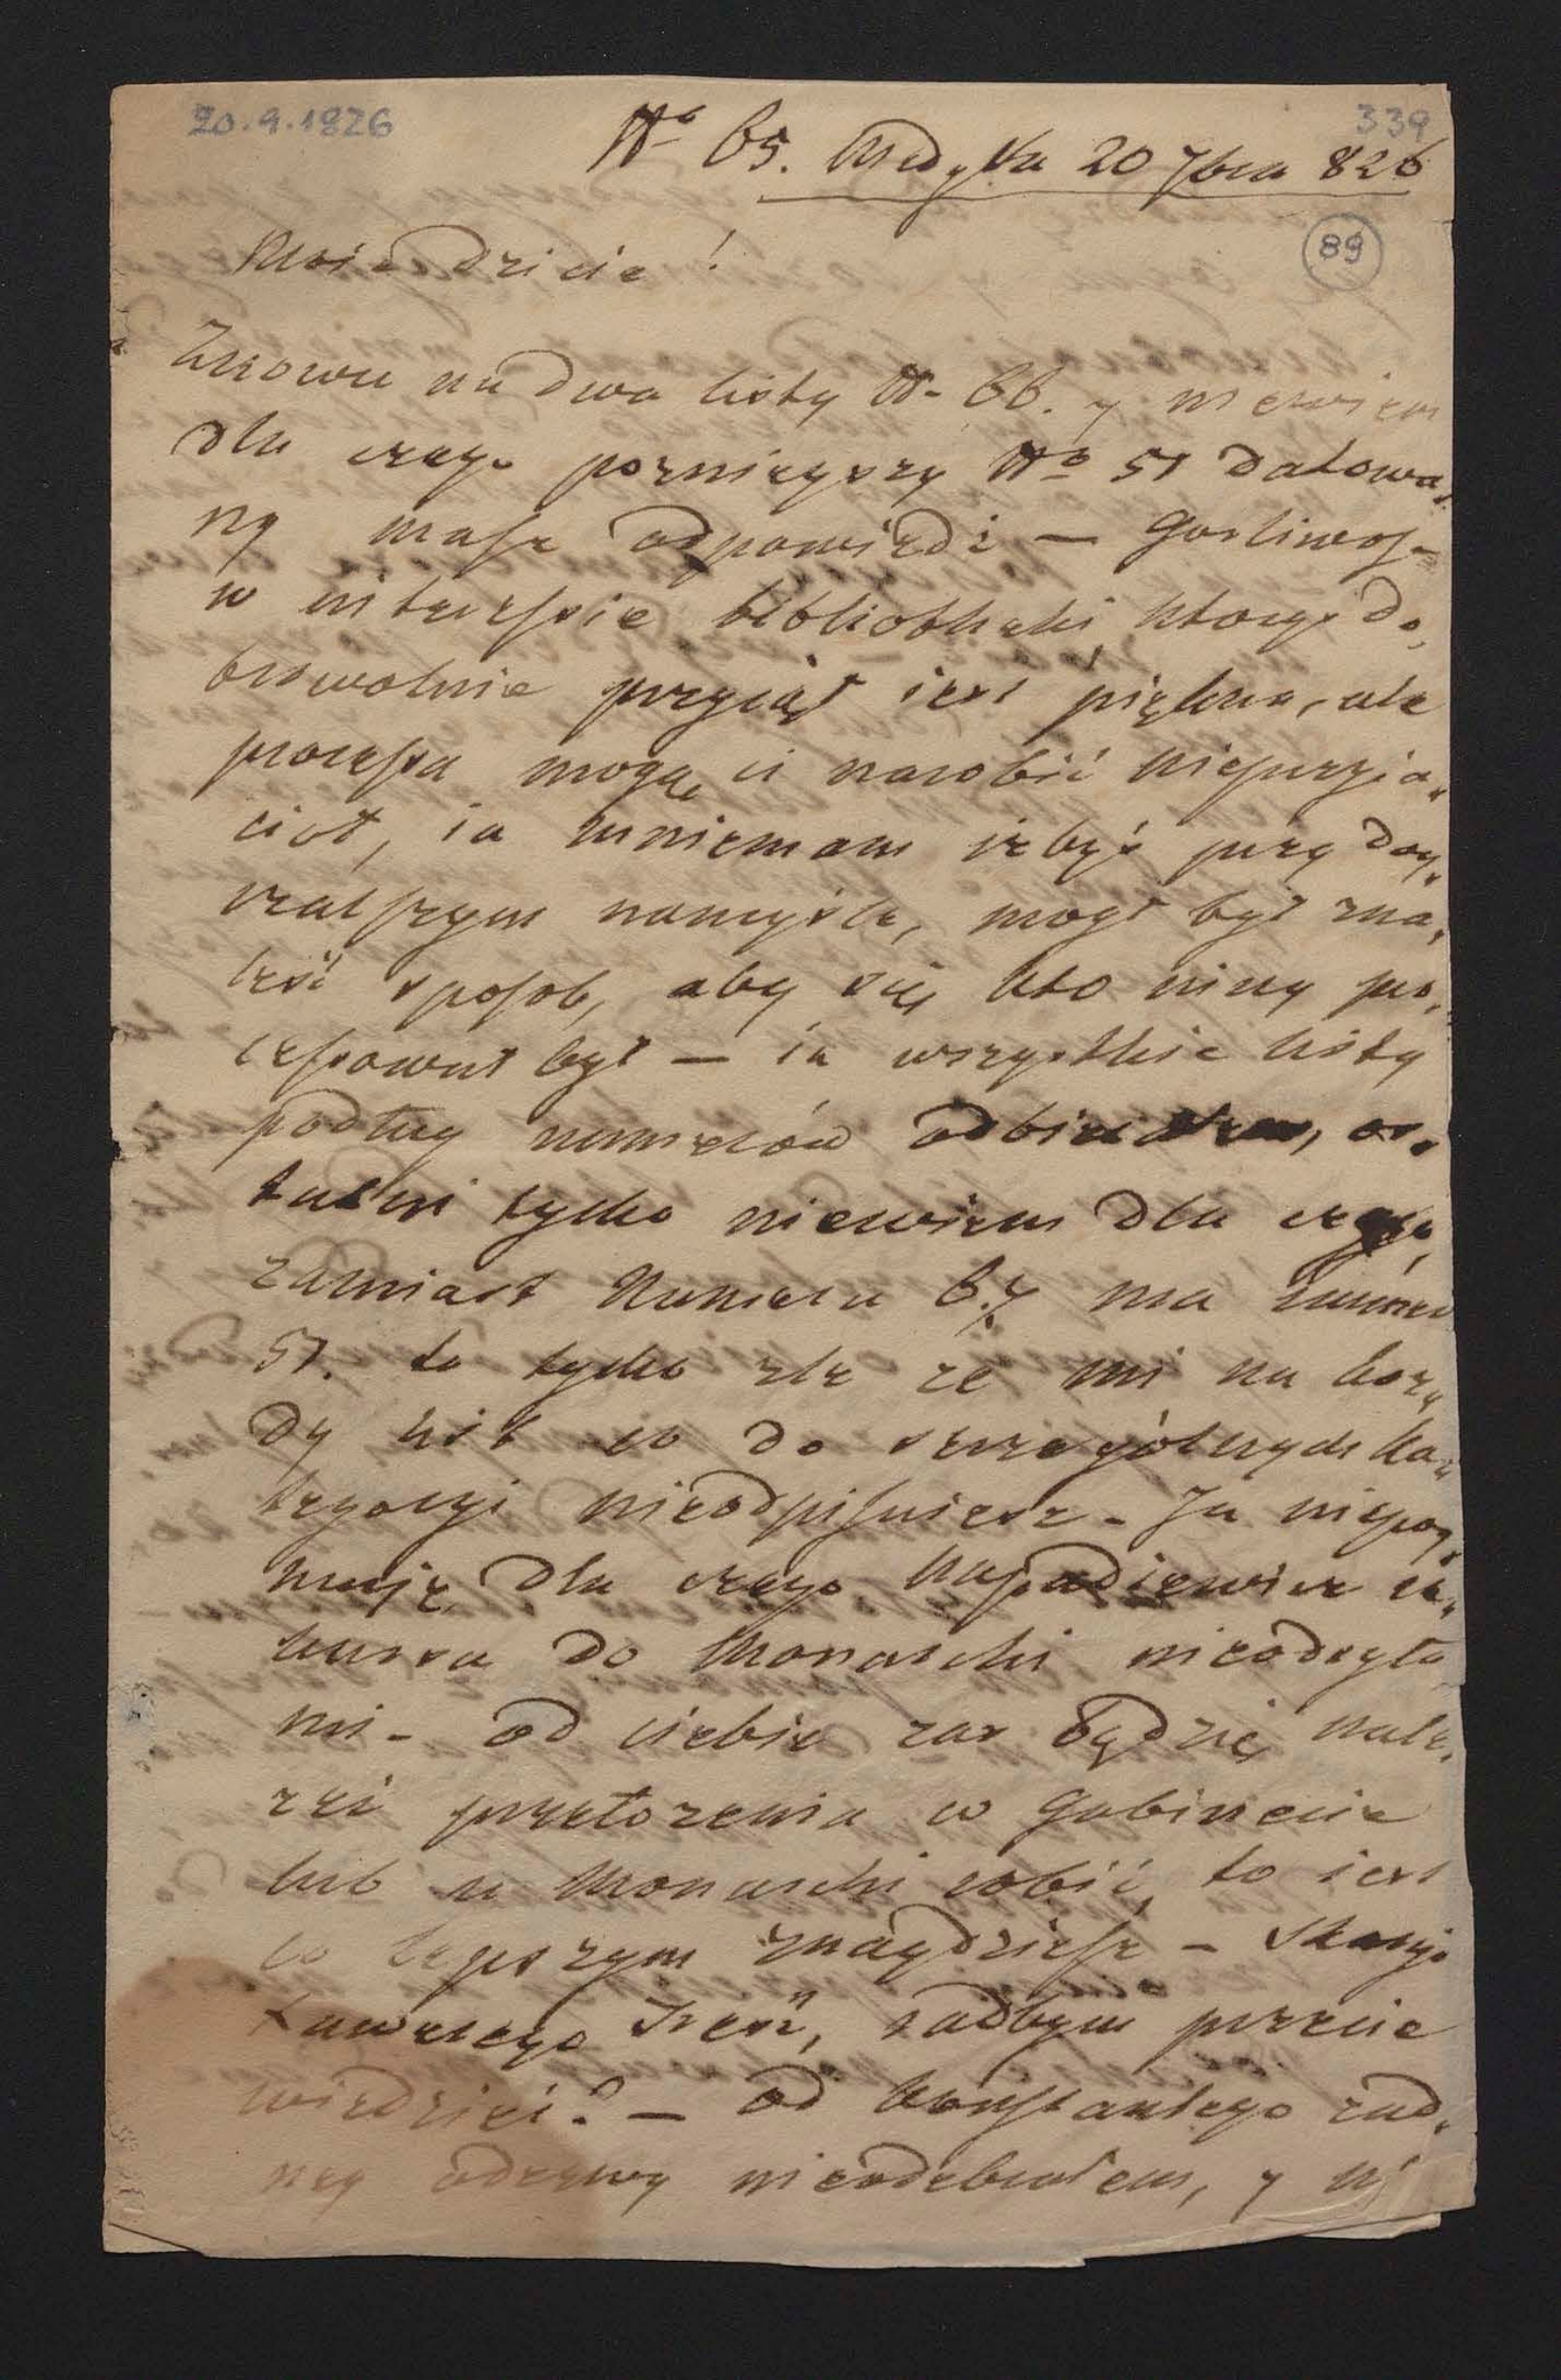 20.9.1826
339
N° 65. Medyka 20 7bra 826
89
Moie Dziecie!
Znowu na dwa listy N- 66. y niewiem
dla czego pozniejszy N° 51 datowa„
ny masz odpowiedź — Gorliwość
w interessie bibliotheki, ktorego do„
browolnie przyiął iest piękna, ale
processa mogą ci narobić nieprzyia„
ciół, ia mniemam żebyś przy doy„
rzalszym namyśle, mogł był zna„
leść sposob, aby się kto inny pro„
cessował był — ia wszystkie listy
podług numerów odbierałem, os„
tatni tylko niewiem dla czego,
zamiast Numeru 67 ma numer
51. to tylko zle ze mi na kaz„
dy list co do szczególnych ka„
tegoryi nieodpisuiesz - Ja niepoy„
muię dla czego
do Monarchi nieodeszła
mi - od ciebie zas będzie nale„
zeć przełozenia w Gabinecie
lub u Monarchi robić, to iest
co lepszym znaydziesz —
Treść, radbym przecie
wiedzieć? — od Konstantego zad„
ney odezwy nieodebrałem, y